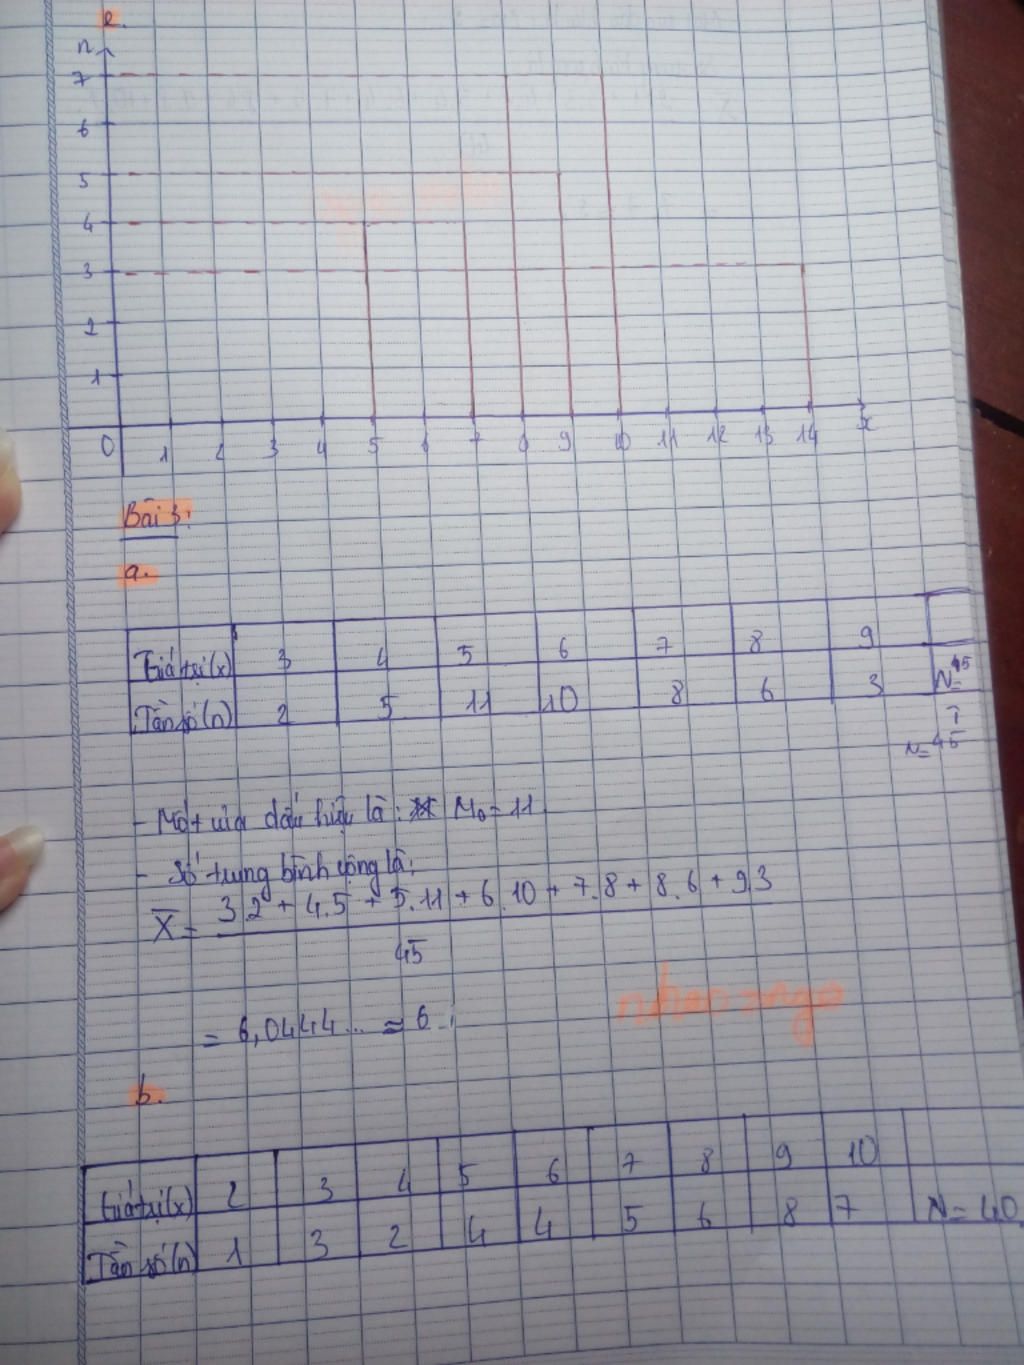 e.
n
7
6
5
4
3
2
1
0 1 2 3 4 5 6 7 8 9 10 11 12 13 14 x
Bài 3:
a.
Giá trị (x) 3 4 5 6 7 8 9
Tần số (n) 2 5 11 10 8 6 3 N=45
N=45
- Mốt của dấu hiệu là: M₀ = 11
- Số trung bình cộng là:
X̄ = 3.2 + 4.5 + 5.11 + 6.10 + 7.8 + 8.6 + 9.3
45
= 6,0444... ≈ 6
b.
Giá trị (x) 2 3 4 5 6 7 8 9 10
Tần số (n) 1 3 2 4 4 5 6 8 7 N = 40